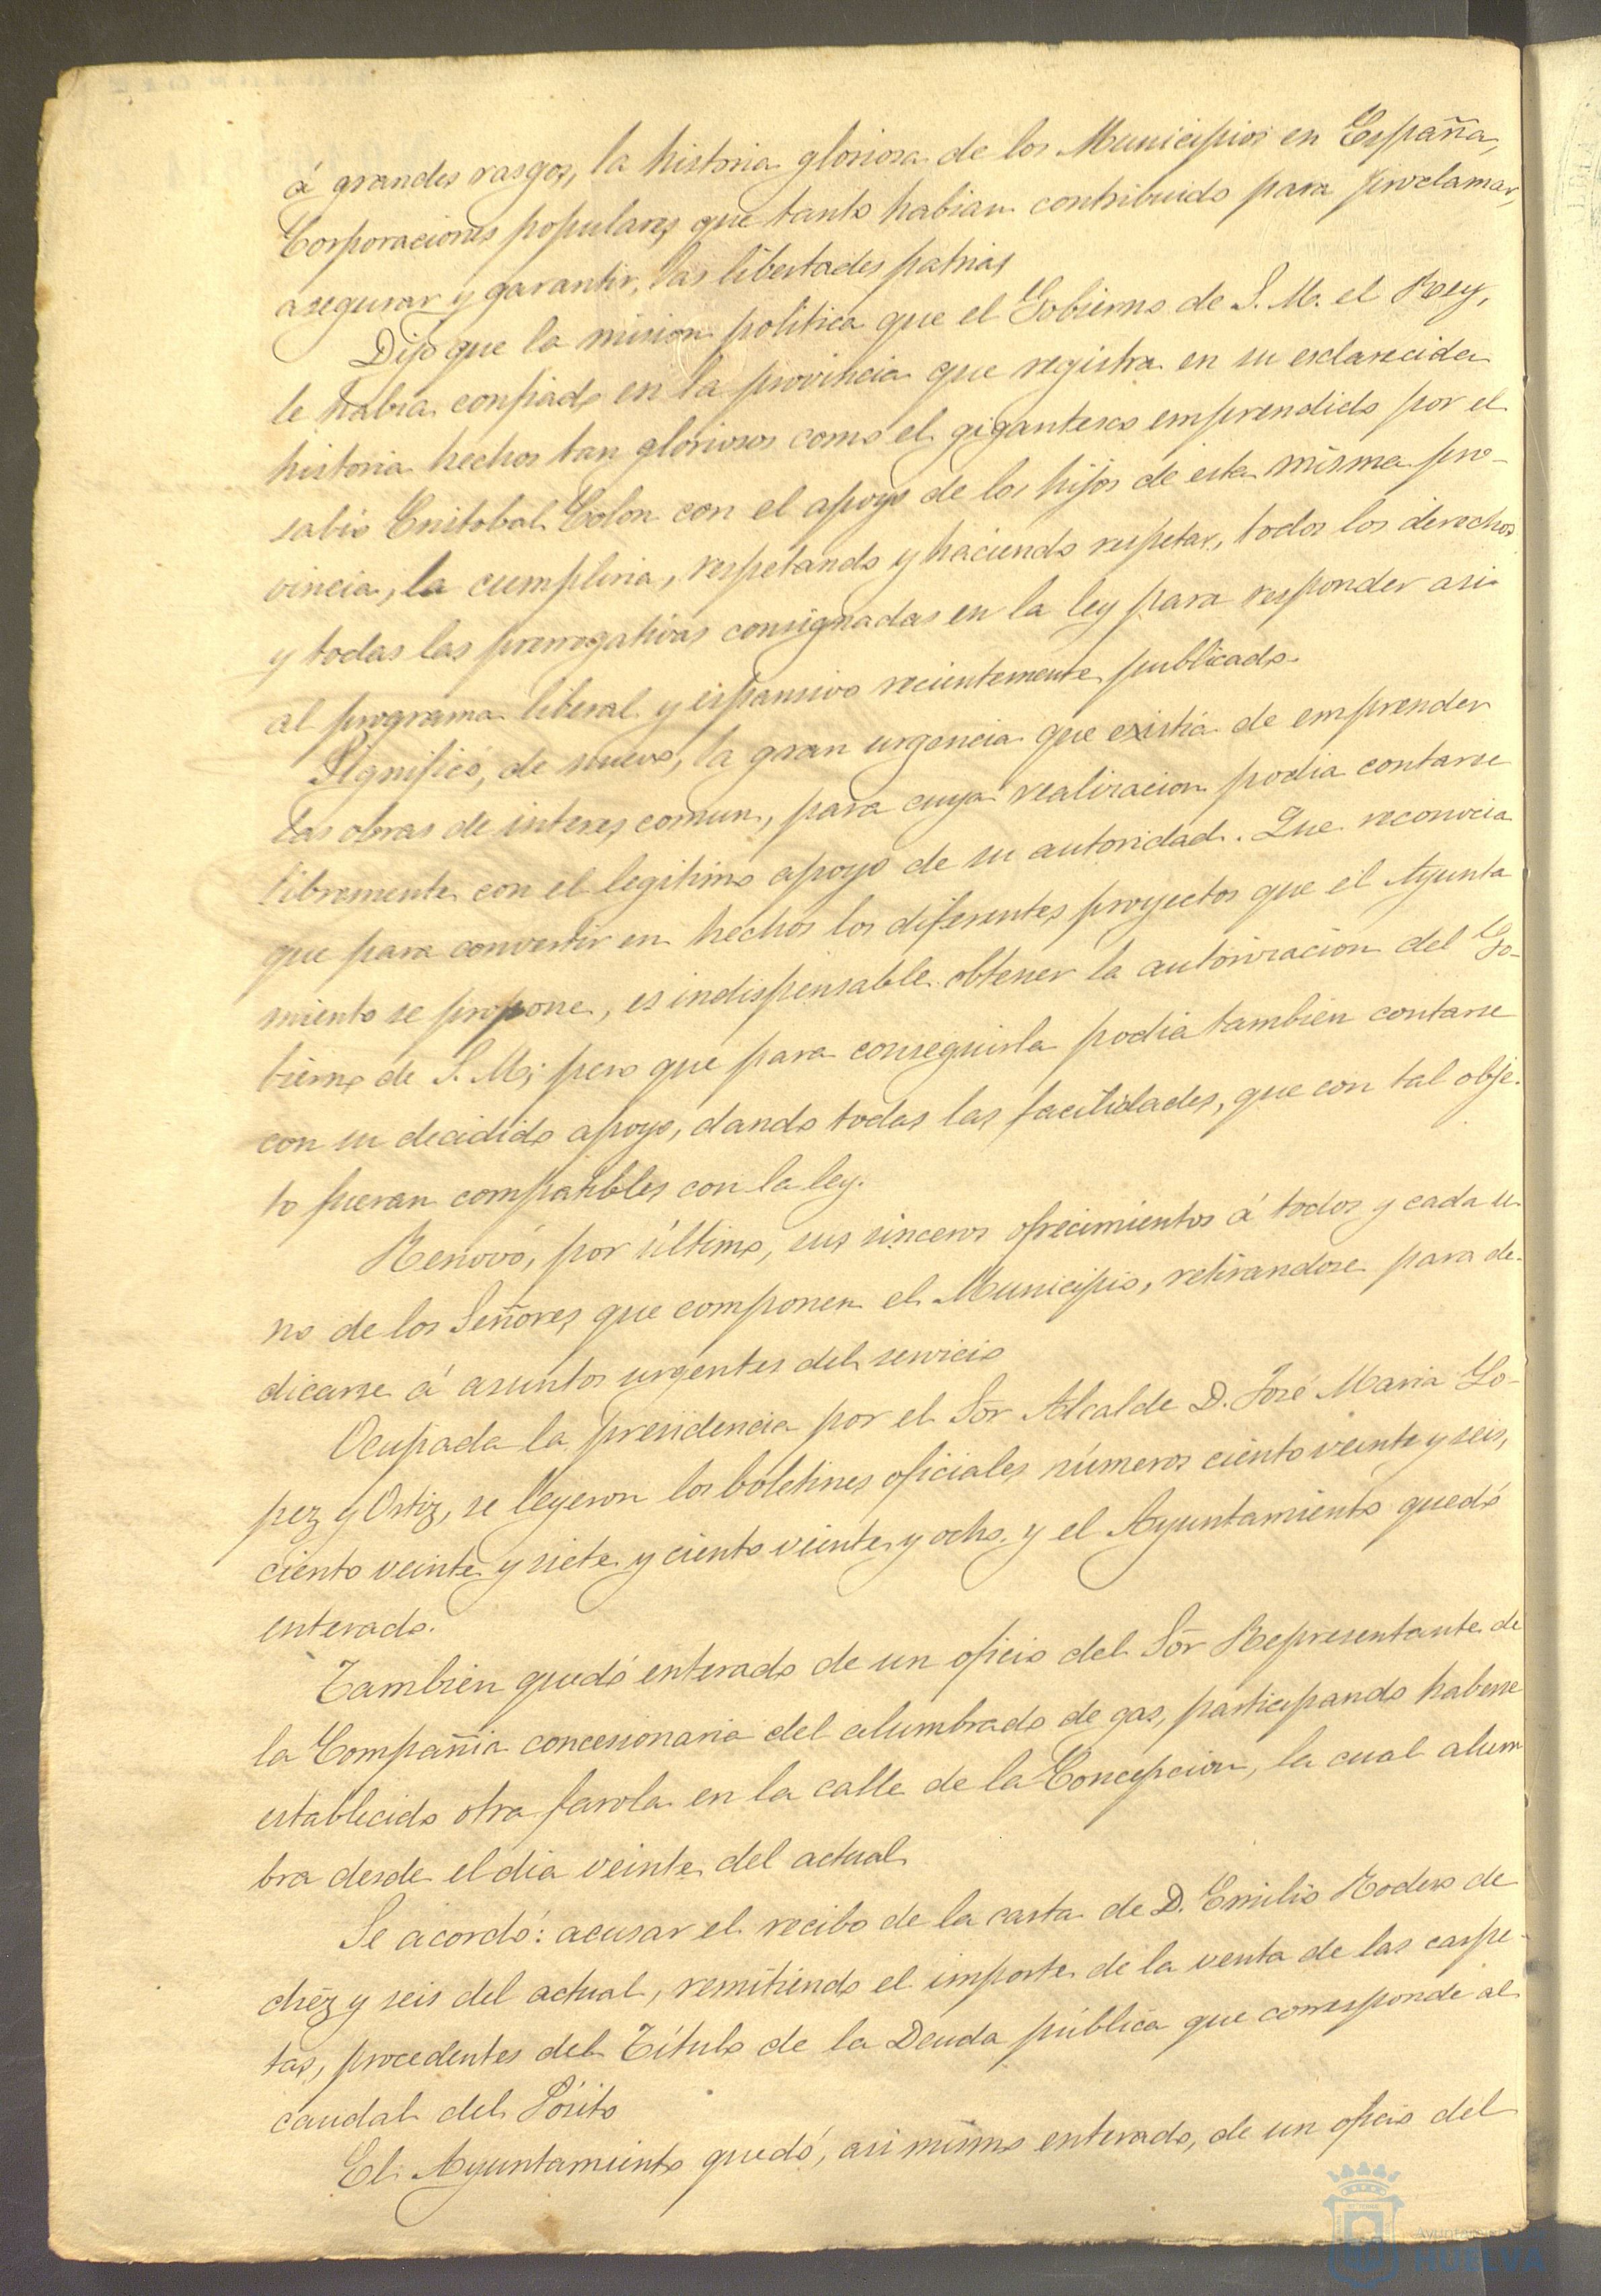 á grandes rasgos, la historia gloriosa de los Municipios en España,
Corporaciones populares que tanto habian contribuido para proclamar,
asegurar y garantir, las libertades patrias
Dijo que la mision politica que el Gobierno de S. M. el Rey,
le habia confiado en la provincia que registra en su esclarecida
historia hechos tan gloriosos como el gigantesco emprendido por el
sabio Cristobal Colon con el apoyo de los hijos de esta misma pro-
vincia, la cumpliria, respetando y haciendo respetar, todos los derechos
y todas las prerrogativas consignadas en la ley para responder asi
al programa liberal y espansivo recientemente publicado.
Significó, de nuevo, la gran urgencia que existia de emprender
las obras de interes comun, para cuya realizacion podia contarse
libremente con el legitimo apoyo de su autoridad. Que reconocia
que para convertir en hechos los diferentes proyectos que el Ayunta
miento se propone, es indispensable obtener la autorizacion del Go-
bierno de S. M; pero que para conseguirla podia tambien contarse
con su decidido apoyo, dando todas las facilidades, que con tal obje-
to fueran compatibles con la ley.
Renovó, por último, sus sinceros ofrecimientos á todos y cada u-
no de los Señores que componen el Municipio, retirandose para de-
dicarse á asuntos urgentes del servicio
Ocupada la presidencia por el Sor Alcalde D. José Maria Lo-
pez y Ortiz, se leyeron los boletines oficiales números ciento veinte y seis,
ciento veinte y siete y ciento veinte y ocho. y el Ayuntamiento quedó
enterado.
Tambien quedó enterado de un oficio del Sor Representante de
la Compañia concesionaria del alumbrado de gas, participando haberse
establecido otra farola en la calle de la Concepcion, la cual alum
bra desde el dia veinte del actual
Se acordó: acusar el recibo de la carta de D. Emilio Rodero de
diéz y seis del actual, remitiendo el importe de la venta de las carpe-
tas, procedentes del Titulo de la Deuda pública que corresponde al
caudal del Pósito
El Ayuntamiento quedó, asi mismo enterado, de un oficio del
HUELVA